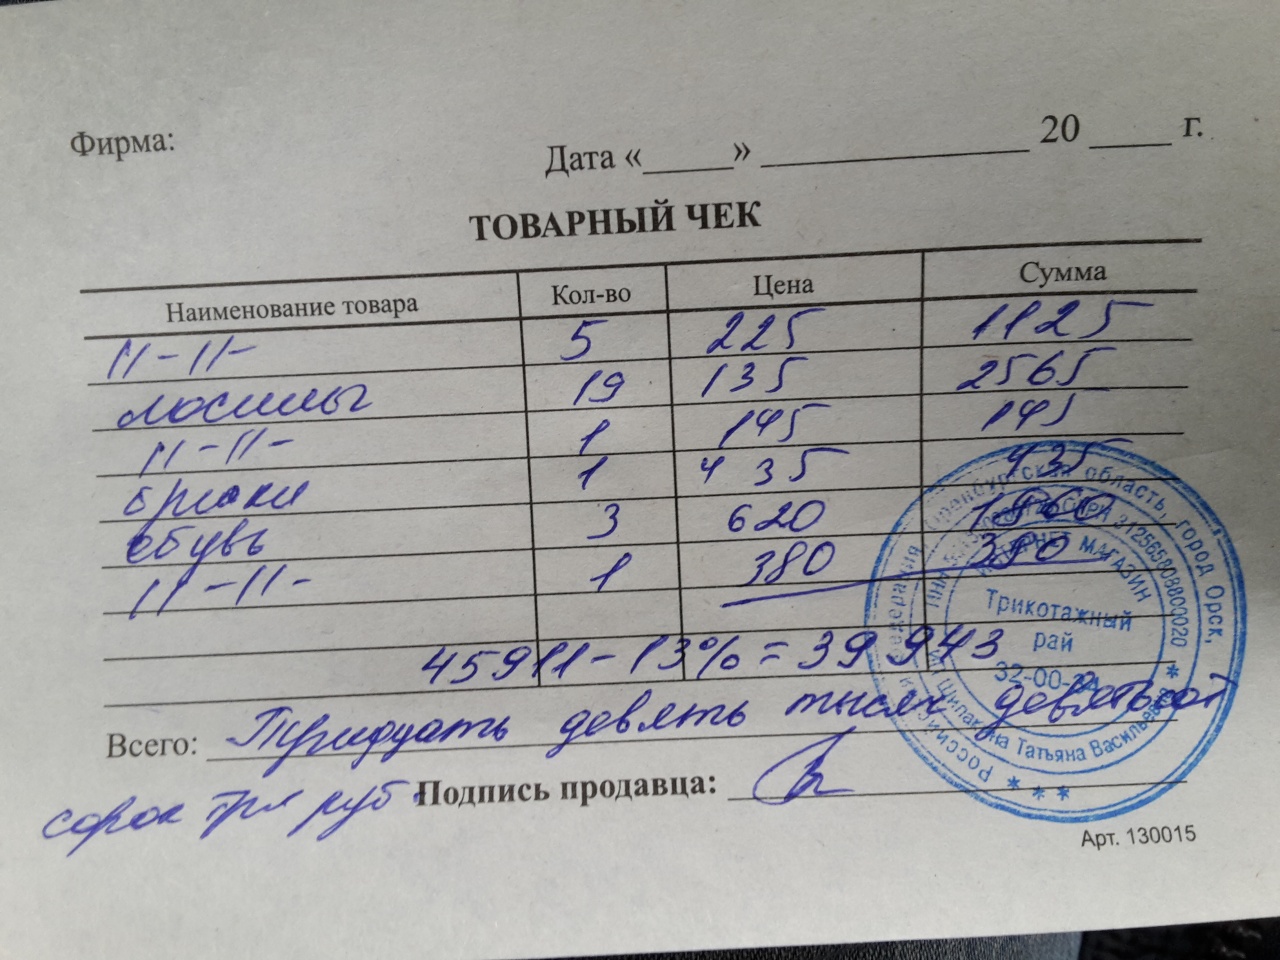 Фирма:
Дата «_____» _______________ 20 ____ г.
ТОВАРНЫЙ ЧЕК
Наименование товара Кол-во Цена Сумма
11-11- 5 225 1125
лосины 19 135 2565
11-11- 1 145 145
брюки 1 435 435
обувь 3 620 1860
11-11- 1 380 380
45911-13%=39943
Всего: Тридцать девять тысяч девятьсот
сорок три руб. Подпись продавца:
Российская Федерация Оренбургская область, город Орск,
312565808800020
Татьяна Васильевна
ИНТЕРНЕТ МАГАЗИН
Трикотажный
рай
32-00-
Арт. 130015